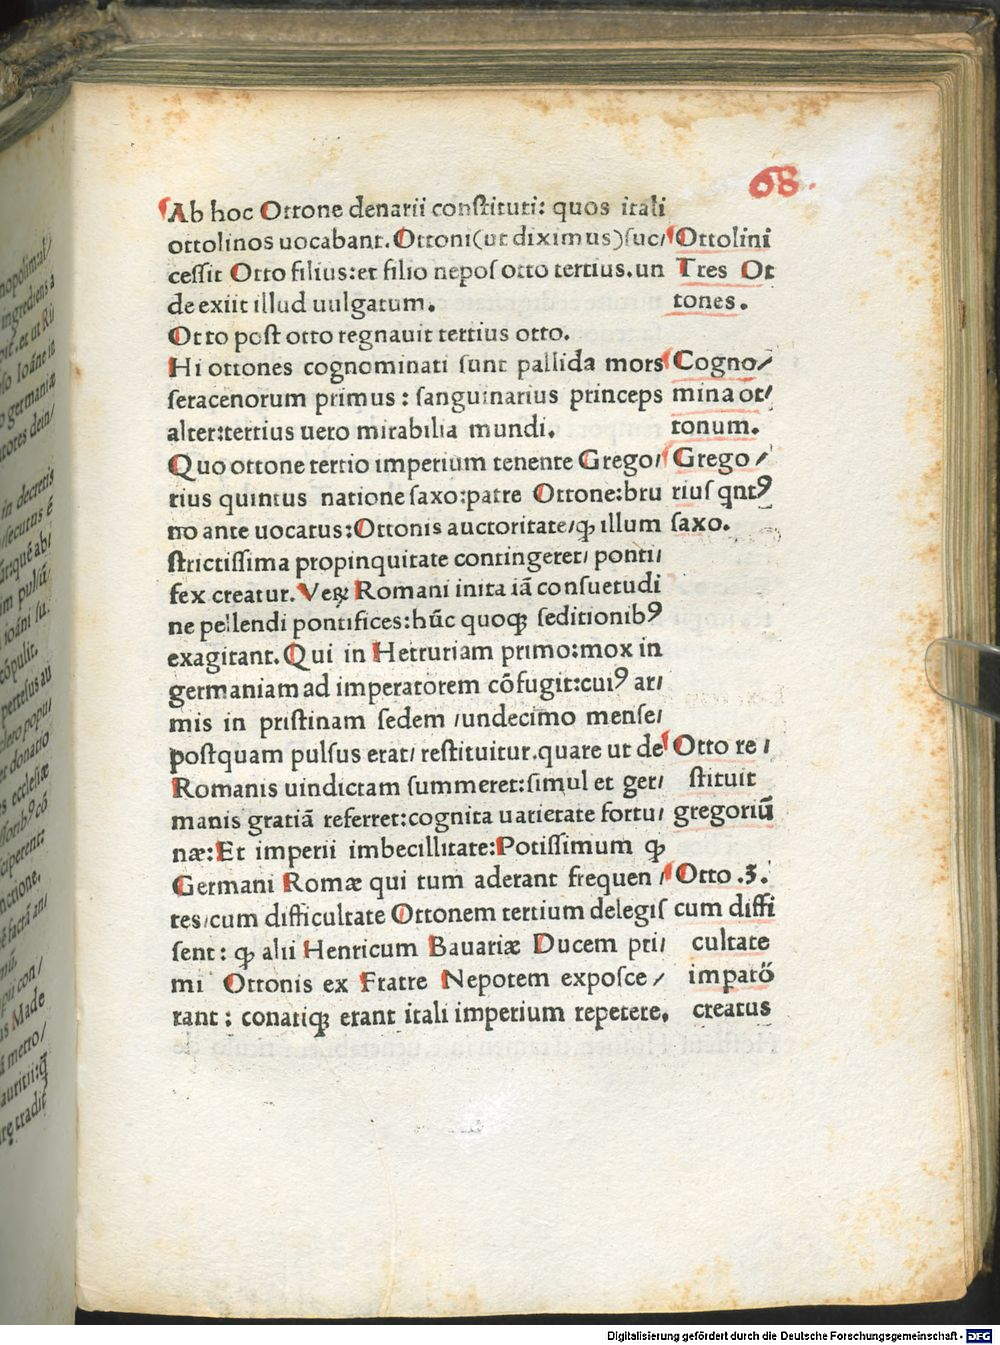 68.
Ab hoc Ottone denarii conſtituti: quos itali
ottolinos uocabant. Ottoni(ut diximus)ſuc/
ceſſit Otto filius:et filio nepoſ otto tertius.un
de exiit illud uulgatum.
Otto poſt otto regnauit tertius otto.
Hi ottones cognominati ſunt pallida mors
ſeracenorum primus : ſanguinarius princeps
alter:tertius uero mirabilia mundi.
Quo ottone tertio imperium tenente Grego/
rius quintus natione ſaxo:patre Ottone:bru
no ante uocatus:Ottonis auctoritate/ꝙ illum
ſtrictiſſima propinquitate contingeret/ ponti/
fex creatur. Veꝝ Romani inita iā conſuetudi
ne pellendi pontifices:hūc quoqꝫ ſeditionibꝰ
exagitant. Qui in Hetruriam primo:mox in
germaniam ad imperatorem cōfugit:cuiꝰ ar/
mis in priſtinam ſedem /undecimo menſe/
poſtquam pulſus erat/ reſtituitur.quare ut de
Romanis uindictam ſummeret:ſimul et ger/
manis gratiā referret:cognita uarietate fortu/
næ:Et imperii imbecillitate:Potiſſimum ꝙ
Germani Romæ qui tum aderant frequen /
tes/cum difficultate Ottonem tertium delegiſ
ſent: ꝙ alii Henricum Bauariæ Ducem pri/
mi Ottonis ex Fratre Nepotem expoſce /
rant : conatiqꝫ erant itali imperium repetere.
Ottolini
Tres Ot
tones.
Cogno/
mina ot/
tonum.
Grego /
riuſ qntꝰ
ſaxo.
Otto re /
ſtituit
gregoriū
Otto .3.
cum diffi
cultate
impatō
creatus
Digitalisierung gefördert durch die Deutsche Forschungsgemeinschaft - DFG